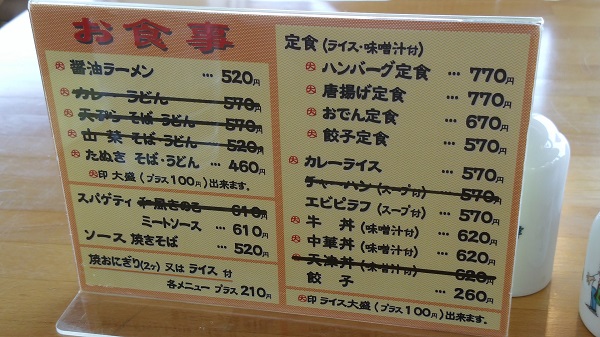 お食事
大 醤油ラーメン … 520円
大 カレーうどん 570円
大 天ぷら そば・うどん 570円
大 山菜 そば・うどん 520円
大 たぬき そば・うどん … 460円
大印 大盛（プラス100円）出来ます。
スパゲティ 和風きのこ 610円
ミートソース … 610円
ソース 焼きそば … 520円
焼おにぎり(2ヶ) 又は ライス 付
各メニュー プラス 210円
定食（ライス・味噌汁付）
大 ハンバーグ定食 … 770円
大 唐揚げ定食 … 770円
大 おでん定食 … 670円
大 餃子定食 … 570円
大 カレーライス … 570円
チャーハン（スープ付） 570円
エビピラフ（スープ付） … 570円
大 牛丼（味噌汁付） … 620円
大 中華丼（味噌汁付） … 620円
大 天津丼（味噌汁付） 620円
餃子 … 260円
大印 ライス大盛（プラス100円）出来ます。